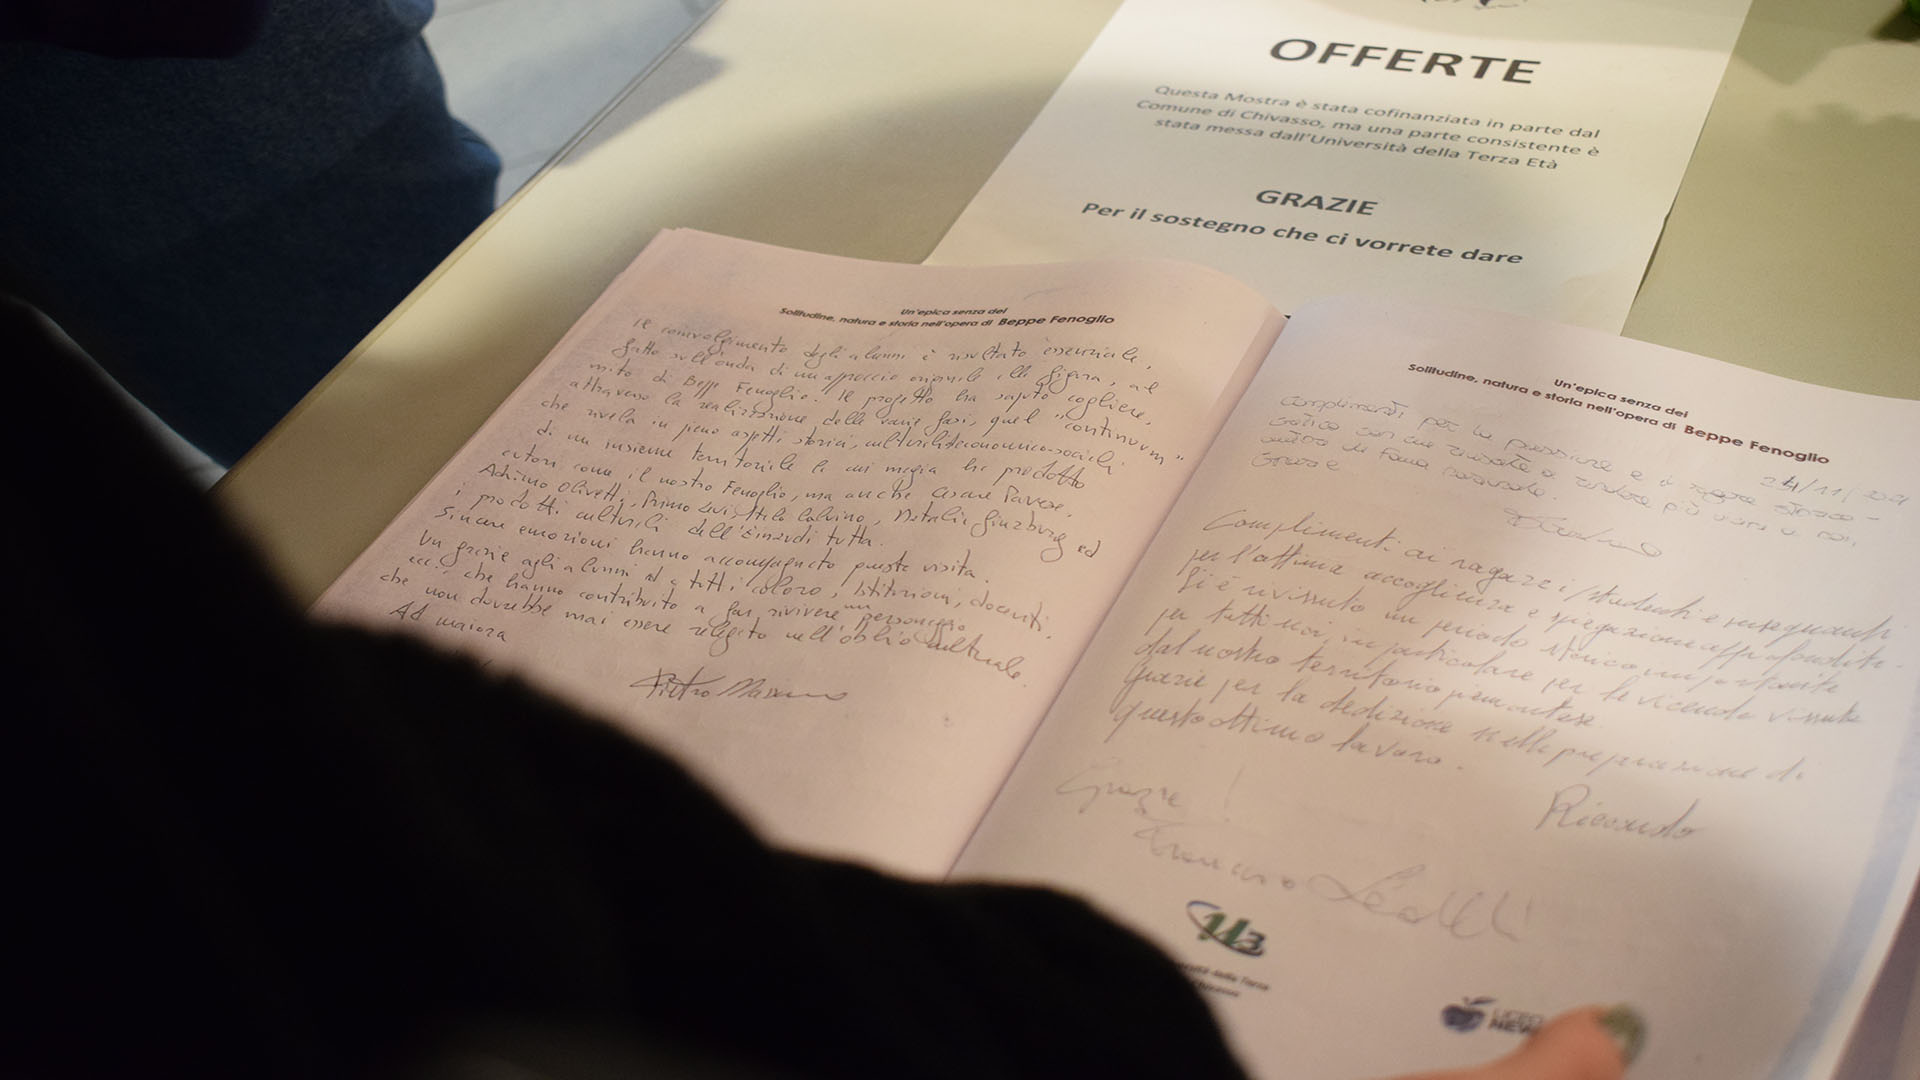 OFFERTE
Questa Mostra è stata cofinanziata in parte dal
Comune di Chivasso, ma una parte consistente è
stata messa dall'Università della Terza Età
GRAZIE
Per il sostegno che ci vorrete dare
Un'epica senza dei
Solitudine, natura e storia nell'opera di Beppe Fenoglio
Il coinvolgimento degli alunni è risultato essenziale,
fatto sull'onda di un approccio originale alla figura, al
mito di Beppe Fenoglio. Il progetto ha saputo cogliere,
attraverso la realizzazione delle varie fasi, quel "continuum"
che rivela in pieno aspetti storici, culturali economico-sociali
di un insieme territoriale la cui magia ha prodotto
autori come il nostro Fenoglio, ma anche Cesare Pavese,
Adriano Olivetti, Primo Levi, Italo Calvino, Natalia Ginzburg ed
i prodotti culturali dell'Einaudi tutta.
Sincere emozioni hanno accompagnato questa visita.
Un grazie agli alunni ed a tutti coloro, Istituzioni, docenti,
ecc., che hanno contribuito a far rivivere un personaggio
che non dovrebbe mai essere relegato nell'oblio culturale.
Ad maiora
Pietro
Un'epica senza dei
Solitudine, natura e storia nell'opera di Beppe Fenoglio
24/11/
Complimenti per la passione e il rigore storico-
critico con cui riuscite a rendere più vicino a noi
Grazie
Complimenti ai ragazzi/studenti e insegnanti
per l'ottima accoglienza e spiegazione approfondita.
Si è rivissuto un periodo storico importante
per tutti noi, in particolare per le vicende vissute
dal nostro territorio piemontese.
Grazie per la dedizione nella preparazione di
questo ottimo lavoro.
Riccardo
Grazie!
U3
della Terza
LICEO
NEW